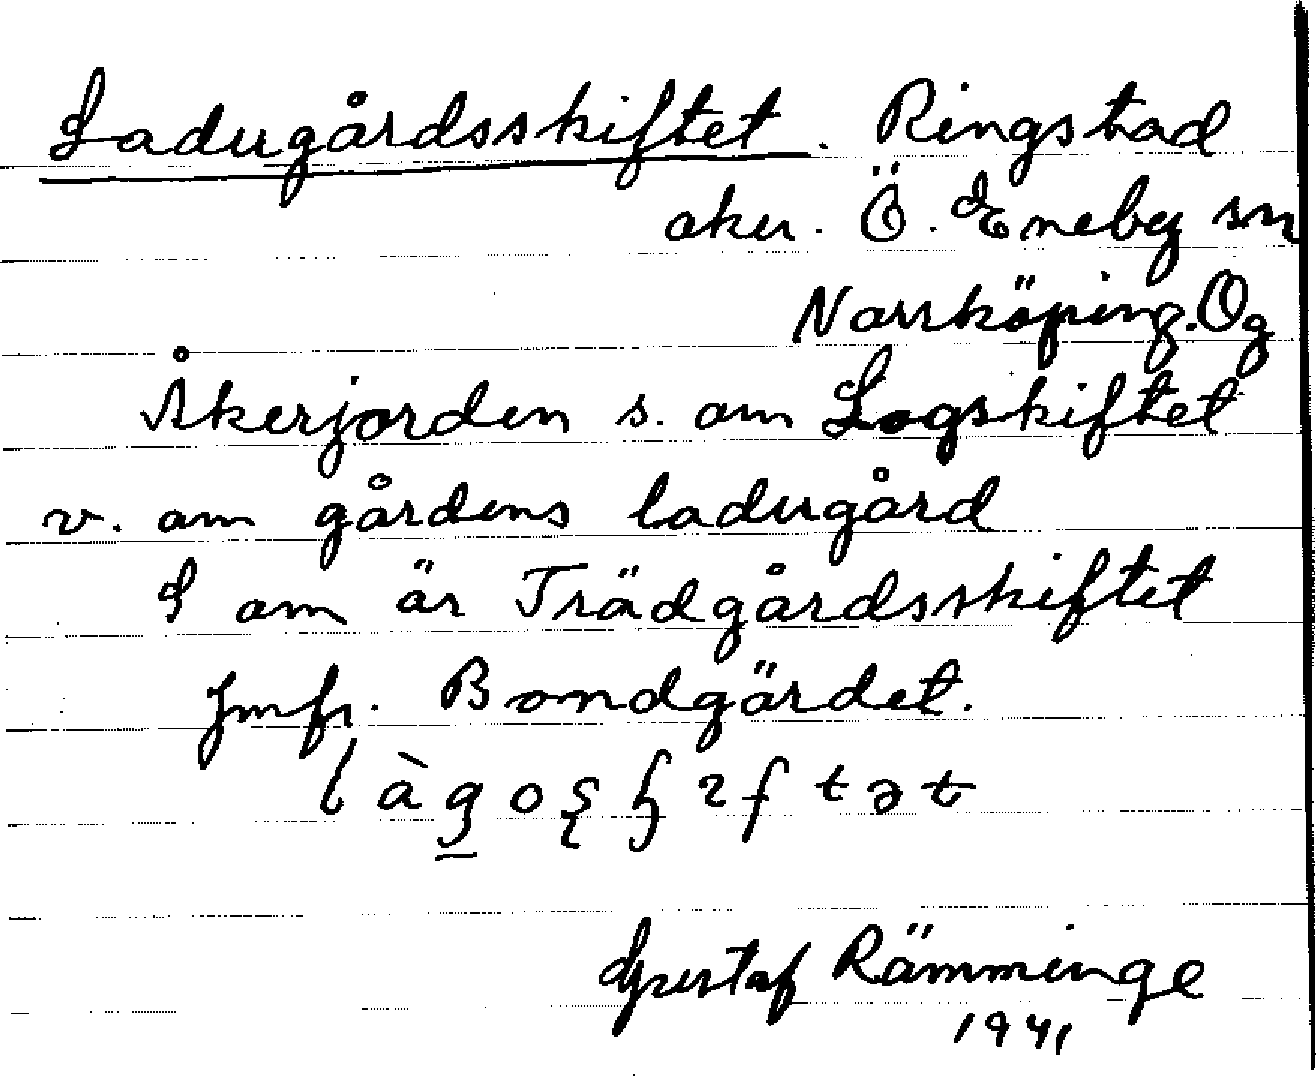 Ladugårdsskiftet. Ringstad
aku. Ö. Eneby sn
Norrköping. Og
Åkerjorden s. om Logskiftet
v. om gårdens ladugård
S om är Trädgårdsskiftet
Jmfr. Bondgärdet.
Gustaf Rämminge
1941